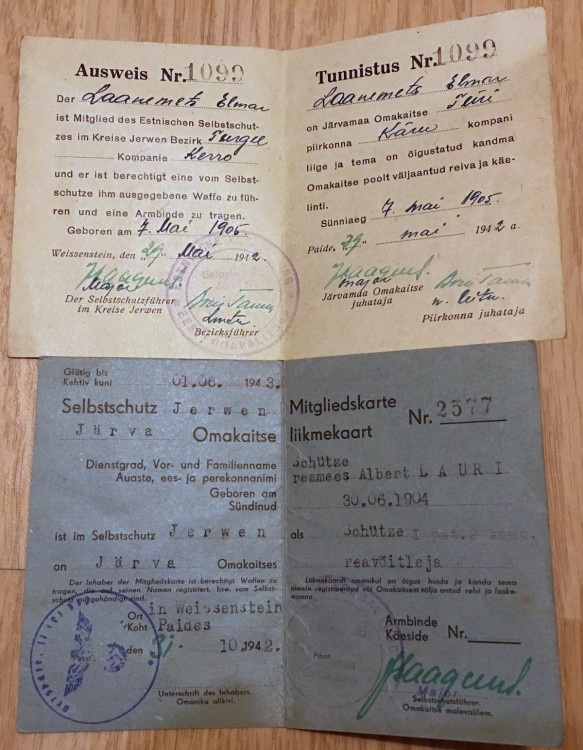 Ausweis Nr. 1099
Der Laanemets Elmar
ist Mitglied des Estnischen Selbstschut-
zes im Kreise Jerwen Bezirk Turgel
Kompanie Kerro
und er ist berechtigt eine vom Selbst-
schutze ihm ausgegebene Waffe zu füh-
ren und eine Armbinde zu tragen.
Geboren am 7. Mai 1905.
Weissenstein, den "29" Mai 1942.
Major
Der Selbstschutzführer
im Kreise Jerwen
Bezirksführer
Tunnistus Nr. 1099
Laanemets Elmar
on Järvamaa Omakaitse Türi
piirkonna Käru kompani
liige ja tema on õigustatud kandma
Omakaitse poolt väljaantud relva ja käe-
linti.
Sünniaeg 7. mai 1905.
Paide, "29" mai 1942 a.
major
Järvamaa Omakaitse
juhataja
Piirkonna juhataja
Gültig bis
Kehtiv kuni 01.06. 1943.
Selbstschutz Jerwen
Järva Omakaitse
Dienstgrad, Vor- und Familienname
Auaste, ees- ja perekonnanimi
Geboren am
Sündinud
ist im Selbstschutz Jerwen
on Järva Omakaitses
Der Inhaber der Mitgliedskarte ist berechtigt Waffen zu
tragen, die auf seinen Namen registriert, bzw. vom Selbst-
schutz ausgehändigt sind.
Ort in Weissenstein
Koht Paides
den 31. 10.1942.
Unterschrift des Inhabers.
Omaniku allkiri.
Mitgliedskarte
liikmekaart Nr. 2577
Schütze
reamees Albert LAURI
30.06.1904
als Schütze I pat. 2 komp.
reavõitleja
Liikmekaardi omanikul on õigus hoida ja kanda tema
nimele registreeritud või Omakaitsest välja antud relvi ja laske-
moona.
Armbinde
Käeside Nr.
Major
Selbstschutzführer.
Omakaitse malevaülem.